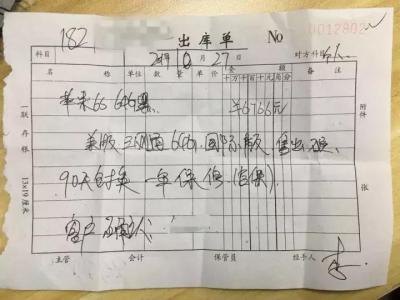 182
出库单 No 0012802
科目 20 年 月 27 日 对方科目
名 称 单位 数 量 单 价 金 额 备 注
十 万 千 百 十 元 角 分
苹果6S 64G ¥6766元
美版三网通64G 国际版 售出
90天包换 一年保修(官保)
客户
一联存根
13×19厘米
附件
张
主管 会计 保管员 经手人